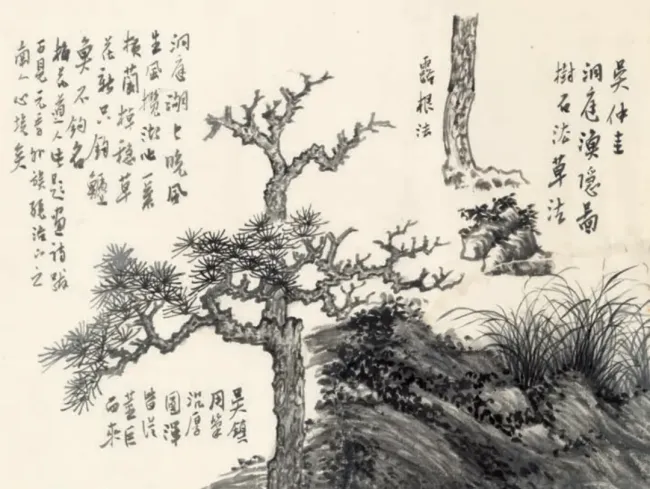 吳仲圭
洞庭漁隱圖
樹石法草法
露根法
洞庭湖上晚風
生風攬湖心一葉
橫蘭棹穩草
花新只釣鱸
魚不釣名
梅花道人題畫詩跋
可見元季外族統治下之
南人心境矣
吳鎮
用筆
沉厚
圓渾
皆從
董巨
而來